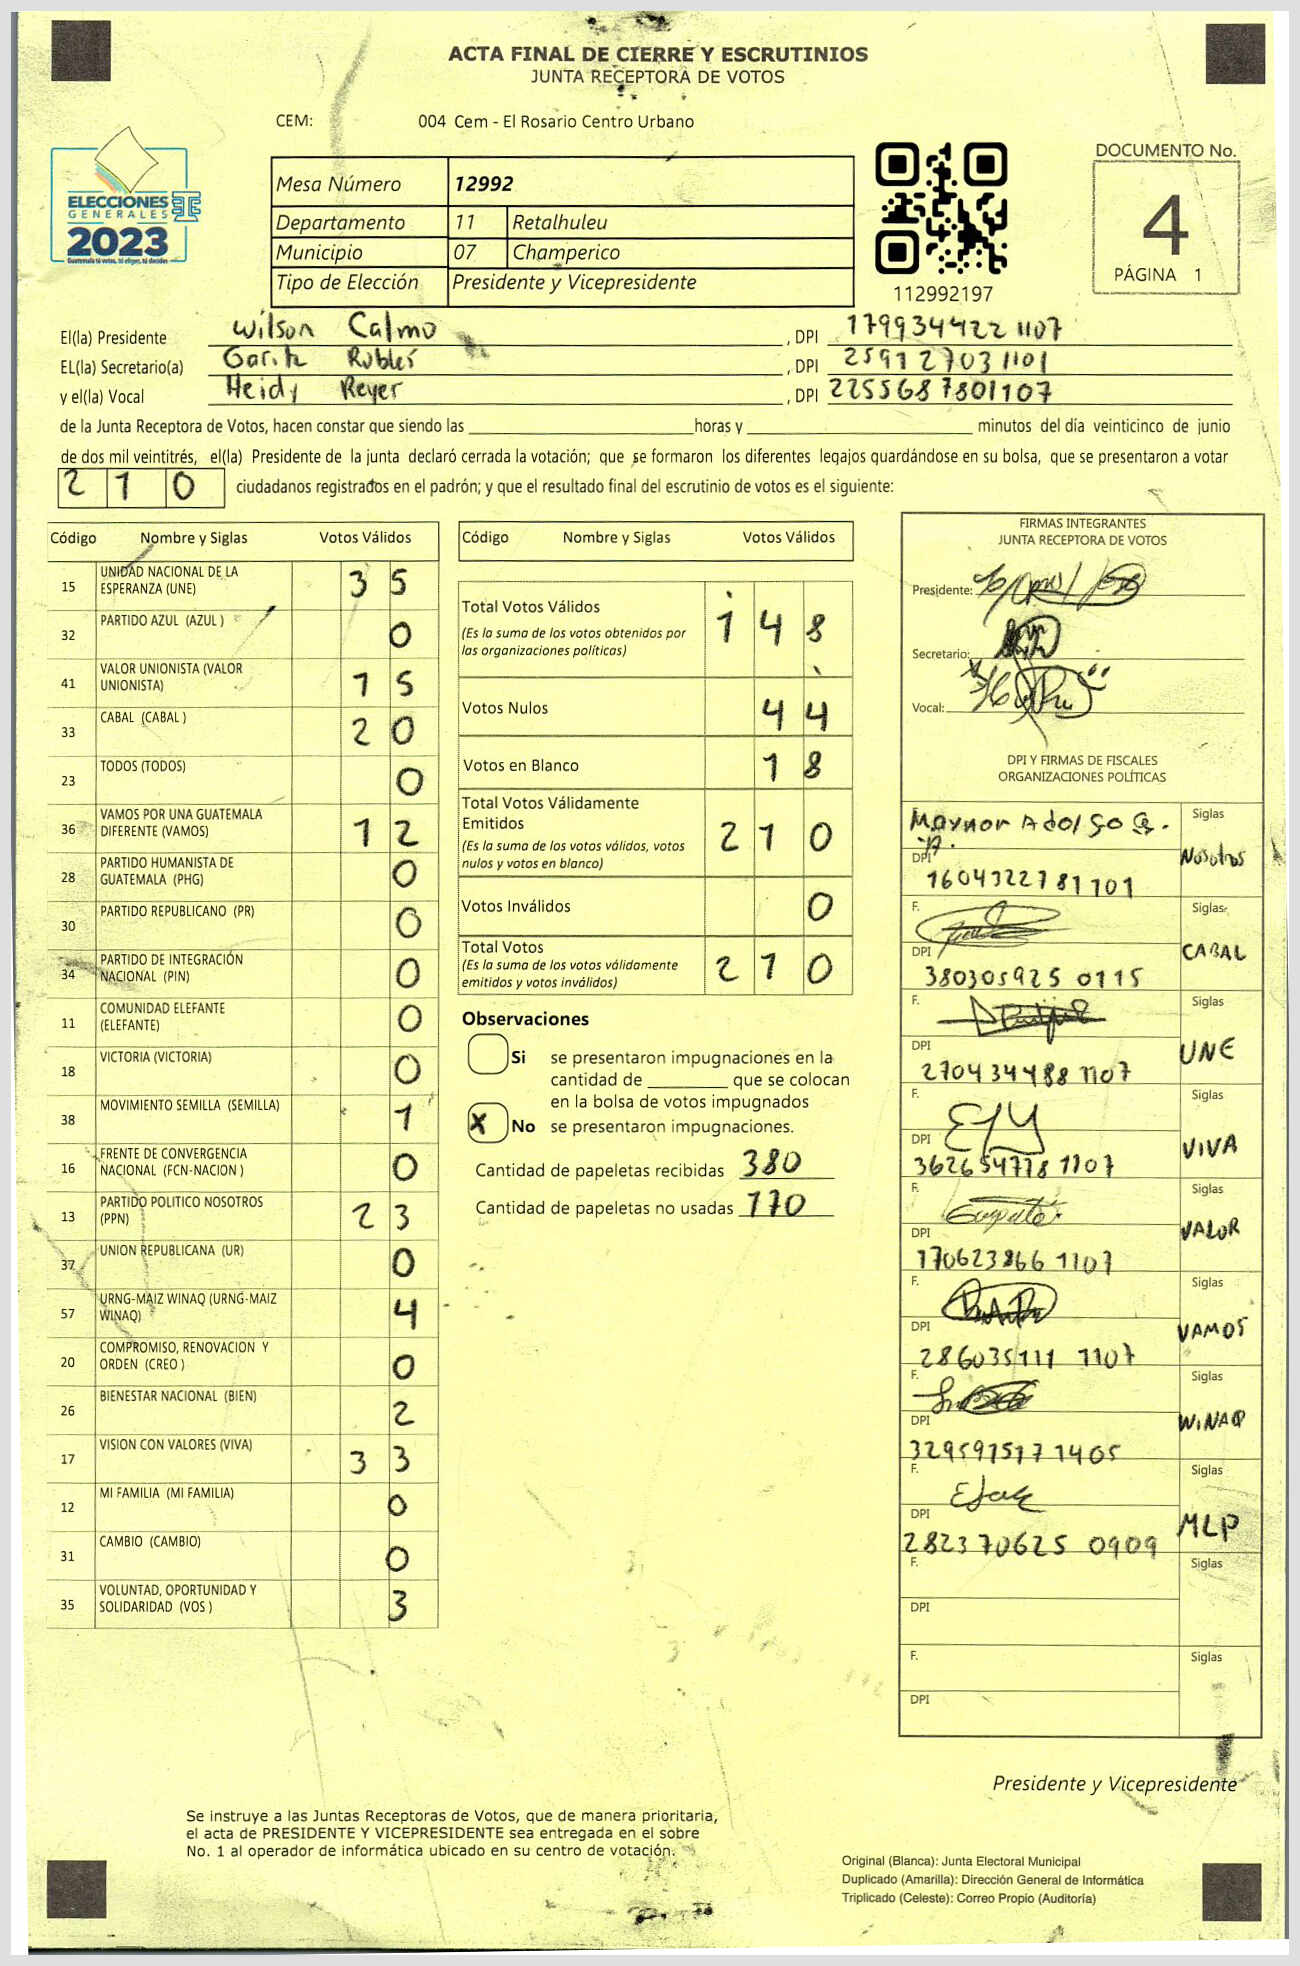 ACTA FINAL DE CIERRE Y ESCRUTINIOS
JUNTA RECEPTORA DE VOTOS
CEM: 004 Cem - El Rosario Centro Urbano
ELECCIONES
GENERALES
2023
Guatemala tú votas, tú eliges, tú decides
Mesa Número 12992
Departamento 11 Retalhuleu
Municipio 07 Champerico
Tipo de Elección Presidente y Vicepresidente
112992197
DOCUMENTO No.
4
PÁGINA 1
El(la) Presidente Wilson Calmo , DPI 179934422 1107
EL(la) Secretario(a) Robles , DPI 2591 27031101
y el(la) Vocal Heidy Reyer , DPI 2255687801107
de la Junta Receptora de Votos, hacen constar que siendo las horas y minutos del día veinticinco de junio
de dos mil veintitrés, el(la) Presidente de la junta declaró cerrada la votación; que se formaron los diferentes legajos guardándose en su bolsa, que se presentaron a votar
210 ciudadanos registrados en el padrón; y que el resultado final del escrutinio de votos es el siguiente:
Código Nombre y Siglas Votos Válidos
15 UNIDAD NACIONAL DE LA ESPERANZA (UNE) 35
32 PARTIDO AZUL (AZUL ) 0
41 VALOR UNIONISTA (VALOR UNIONISTA) 15
33 CABAL (CABAL ) 20
23 TODOS (TODOS) 0
36 VAMOS POR UNA GUATEMALA DIFERENTE (VAMOS) 12
28 PARTIDO HUMANISTA DE GUATEMALA (PHG) 0
30 PARTIDO REPUBLICANO (PR) 0
34 PARTIDO DE INTEGRACIÓN NACIONAL (PIN) 0
11 COMUNIDAD ELEFANTE (ELEFANTE) 0
18 VICTORIA (VICTORIA) 0
38 MOVIMIENTO SEMILLA (SEMILLA) 1
16 FRENTE DE CONVERGENCIA NACIONAL (FCN-NACION ) 0
13 PARTIDO POLITICO NOSOTROS (PPN) 23
37 UNION REPUBLICANA (UR) 0
57 URNG-MAIZ WINAQ (URNG-MAIZ WINAQ) 4
20 COMPROMISO, RENOVACION Y ORDEN (CREO ) 0
26 BIENESTAR NACIONAL (BIEN) 2
17 VISION CON VALORES (VIVA) 33
12 MI FAMILIA (MI FAMILIA) 0
31 CAMBIO (CAMBIO) 0
35 VOLUNTAD, OPORTUNIDAD Y SOLIDARIDAD (VOS ) 3
Código Nombre y Siglas Votos Válidos
Total Votos Válidos 148
(Es la suma de los votos obtenidos por
las organizaciones políticas)
Votos Nulos 44
Votos en Blanco 18
Total Votos Válidamente
Emitidos 210
(Es la suma de los votos válidos, votos
nulos y votos en blanco)
Votos Inválidos 0
Total Votos 210
(Es la suma de los votos válidamente
emitidos y votos inválidos)
Observaciones
Si se presentaron impugnaciones en la
cantidad de que se colocan
en la bolsa de votos impugnados
X No se presentaron impugnaciones.
Cantidad de papeletas recibidas 380
Cantidad de papeletas no usadas 170
FIRMAS INTEGRANTES
JUNTA RECEPTORA DE VOTOS
Presidente:
Secretario:
Vocal:
DPI Y FIRMAS DE FISCALES
ORGANIZACIONES POLÍTICAS
Maynor Siglas
DPI 1604322781101 Nosotros
F. Siglas
DPI 380305925 0115 CABAL
F. Siglas
DPI 270434488 1107 UNE
F. Siglas
DPI 362654778 1107 VIVA
F. Siglas
DPI 170623866 1107 VALOR
F. Siglas
DPI 286035111 1107 VAMOS
F. Siglas
DPI 3295975171405 WINAQ
F. Siglas
DPI 282370625 0909 MLP
F. Siglas
DPI
F. Siglas
DPI
Presidente y Vicepresidente
Se instruye a las Juntas Receptoras de Votos, que de manera prioritaria,
el acta de PRESIDENTE Y VICEPRESIDENTE sea entregada en el sobre
No. 1 al operador de informática ubicado en su centro de votación.
Original (Blanca): Junta Electoral Municipal
Duplicado (Amarilla): Dirección General de Informática
Triplicado (Celeste): Correo Propio (Auditoría)